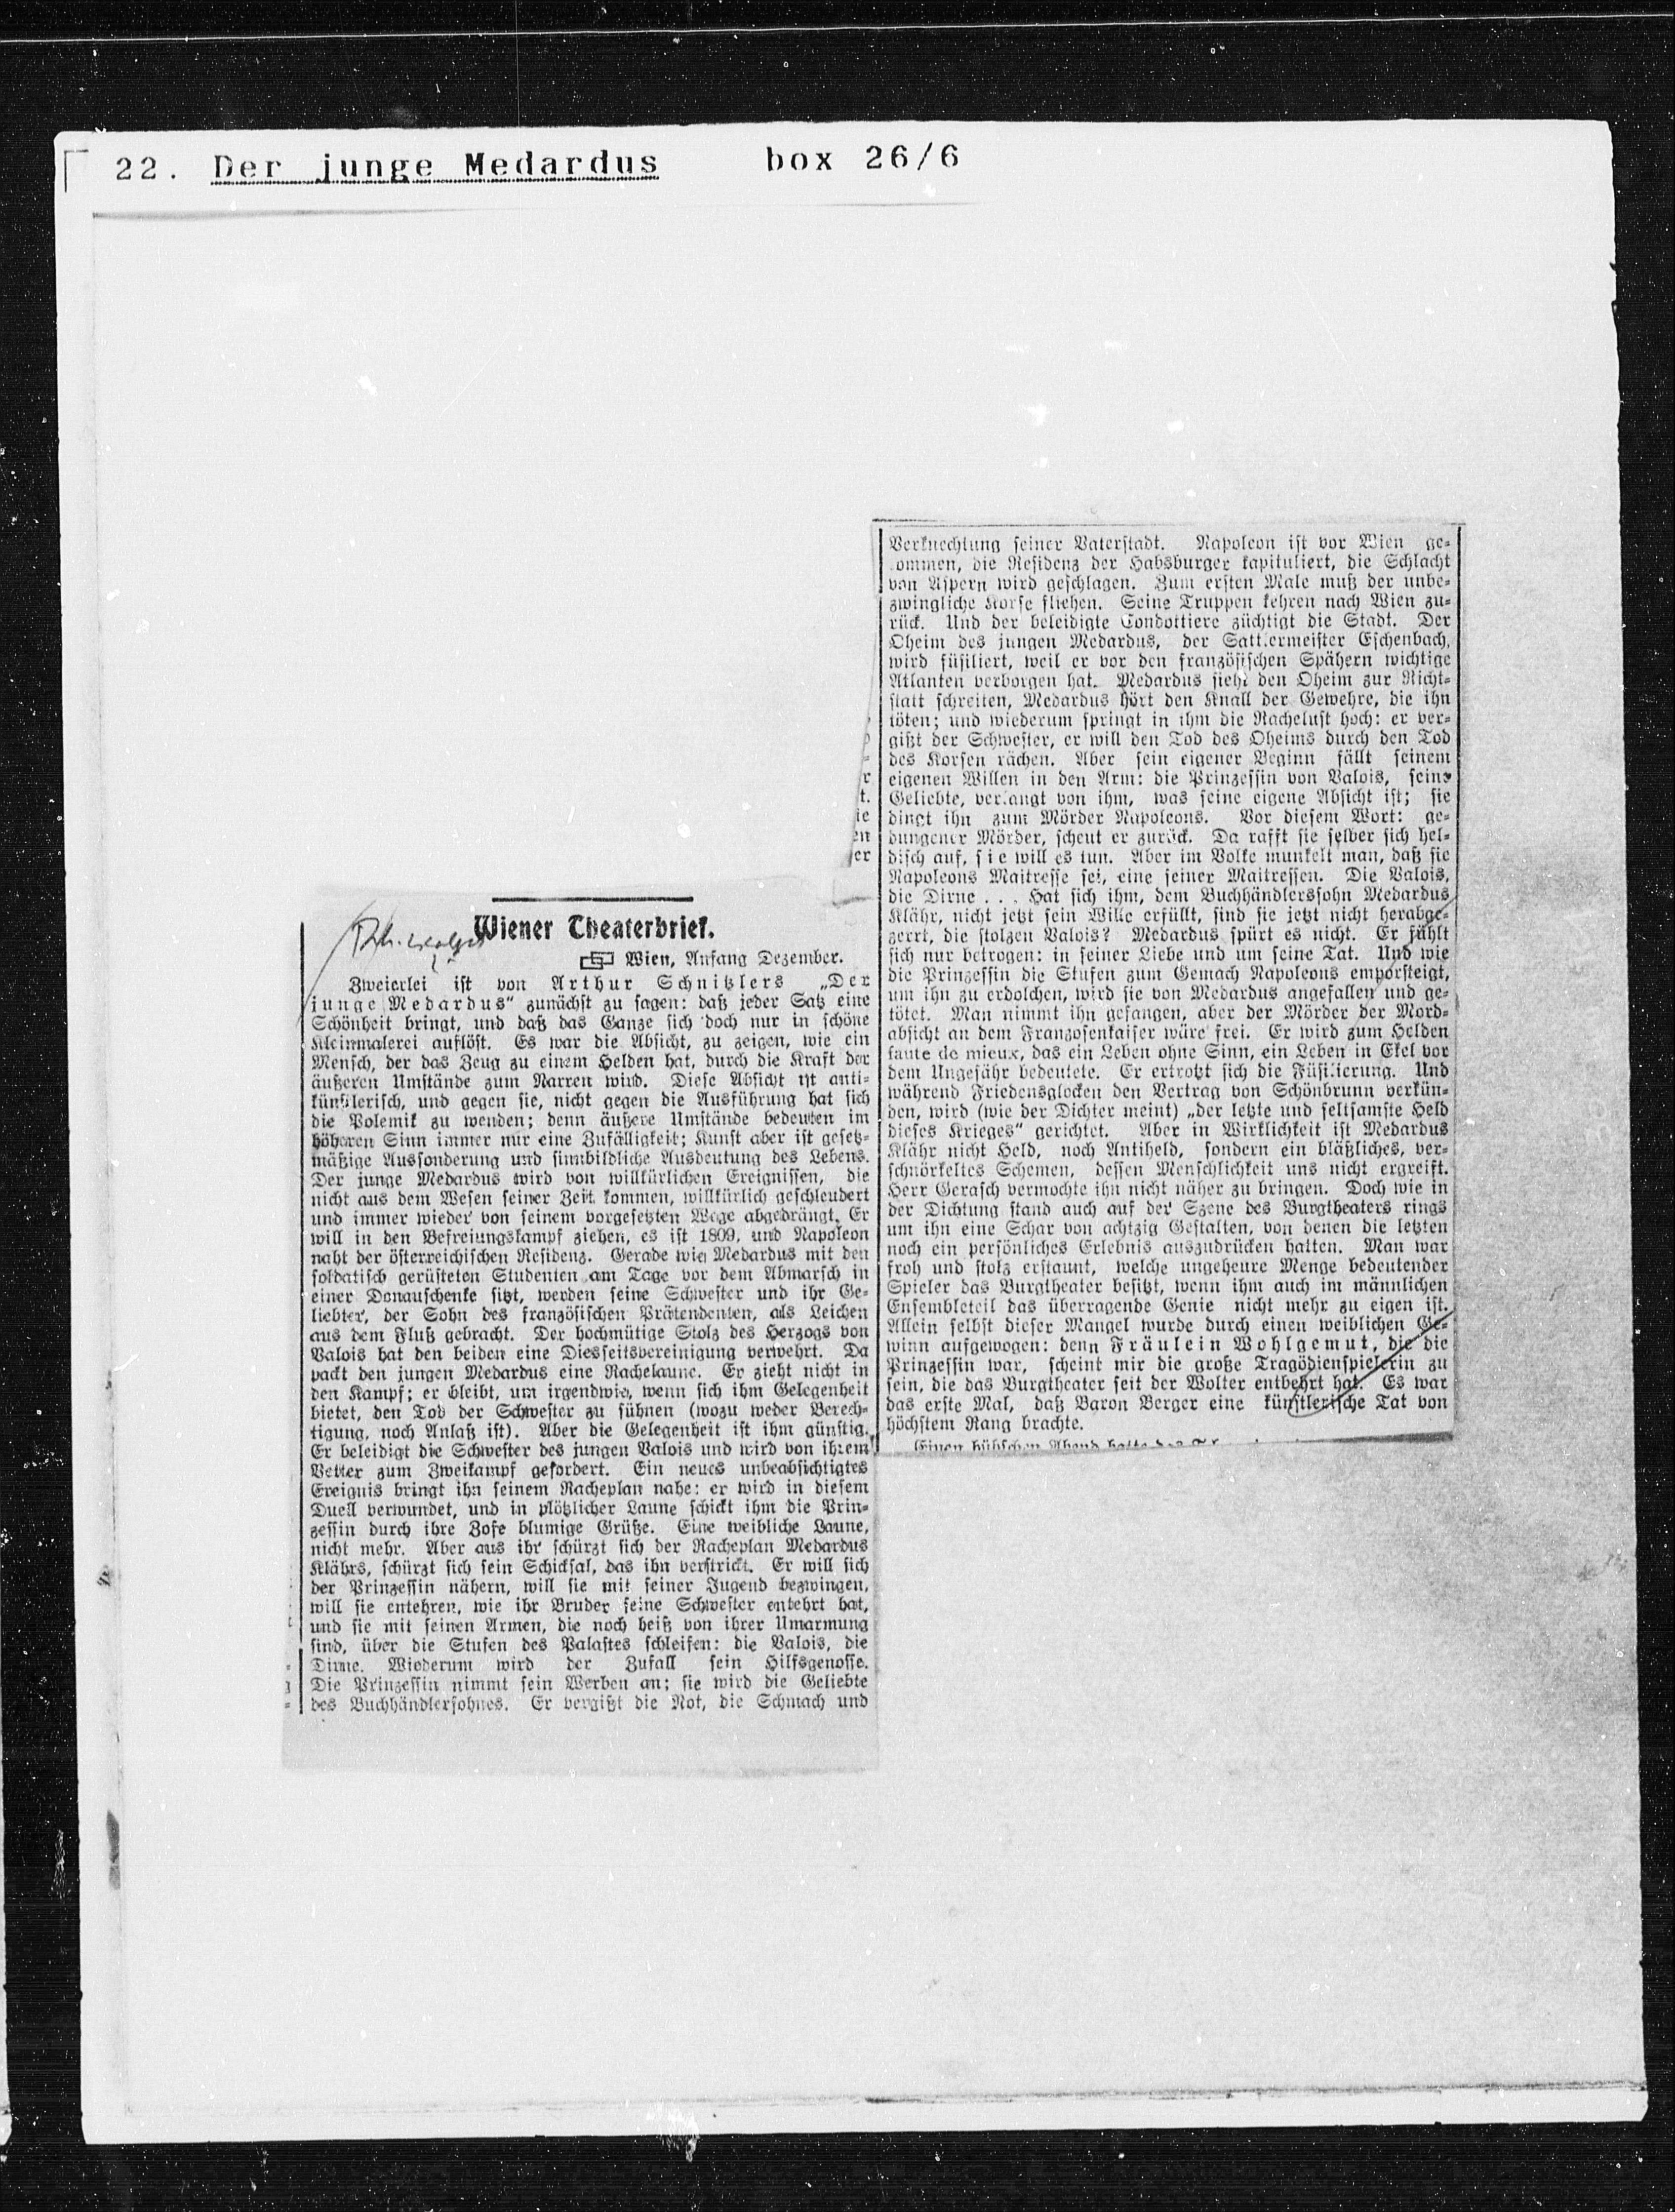 22. Der junge Medardus box 26/6
Wiener Theaterbrief.
Wien, Anfang Dezember.
Zweierlei ist von Arthur Schnitzlers „Der
junge Medardus“ zunächst zu sagen: daß jeder Satz eine
Schönheit bringt, und daß das Ganze sich doch nur in schöne
Kleinmalerei auflöst. Es war die Absicht, zu zeigen, wie ein
Mensch, der das Zeug zu einem Helden hat, durch die Kraft der
äußeren Umstände zum Narren wird. Diese Absicht ist anti-
künstlerisch, und gegen sie, nicht gegen die Ausführung hat sich
die Polemik zu wenden; denn äußere Umstände bedeuten im
höheren Sinn immer nur eine Zufälligkeit; Kunst aber ist gesetz-
mäßige Aussonderung und sinnbildliche Ausdeutung des Lebens.
Der junge Medardus wird von willkürlichen Ereignissen, die
nicht aus dem Wesen seiner Zeit kommen, willkürlich geschleudert
und immer wieder von seinem vorgesetzten Wege abgedrängt. Er
will in den Befreiungskampf ziehen, es ist 1809, und Napoleon
naht der österreichischen Residenz. Gerade wie Medardus mit den
soldatisch gerüsteten Studenten am Tage vor dem Abmarsch in
einer Donauschenke sitzt, werden seine Schwester und ihr Ge-
liebter, der Sohn des französischen Prätendenten, als Leichen
aus dem Fluß gebracht. Der hochmütige Stolz des Herzogs von
Valois hat den beiden eine Diesseitsvereinigung verwehrt. Da
packt den jungen Medardus eine Rachelaune. Er zieht nicht in
den Kampf; er bleibt, um irgendwie, wenn sich ihm Gelegenheit
bietet, den Tod der Schwester zu sühnen (wozu weder Berech-
tigung, noch Anlaß ist). Aber die Gelegenheit ist ihm günstig.
Er beleidigt die Schwester des jungen Valois und wird von ihrem
Vetter zum Zweikampf gefordert. Ein neues unbeabsichtigtes
Ereignis bringt ihn seinem Racheplan nahe: er wird in diesem
Duell verwundet, und in plötzlicher Laune schickt ihm die Prin-
zessin durch ihre Zofe blumige Grüße. Eine weibliche Laune,
nicht mehr. Aber aus ihr schürzt sich der Racheplan Medardus
Klährs, schürzt sich sein Schicksal, das ihn verstrickt. Er will sich
der Prinzessin nähern, will sie mit seiner Jugend bezwingen,
will sie entehren, wie ihr Bruder seine Schwester entehrt hat,
und sie mit seinen Armen, die noch heiß von ihrer Umarmung
sind, über die Stufen des Palastes schleifen: die Valois, die
Dirne. Wiederum wird der Zufall sein Hilfsgenosse.
Die Prinzessin nimmt sein Werben an; sie wird die Geliebte
des Buchhändlersohnes. Er vergißt die Not, die Schmach und
Verknechtung seiner Vaterstadt. Napoleon ist vor Wien ge-
ommen, die Residenz der Habsburger kapituliert, die Schlacht
von Aspern wird geschlagen. Zum ersten Male muß der unbe-
zwingliche Korse fliehen. Seine Truppen kehren nach Wien zu-
rück. Und der beleidigte Condottiere züchtigt die Stadt. Der
Oheim des jungen Medardus, der Sattlermeister Eschenbach,
wird füsiliert, weil er vor den französischen Spähern wichtige
Atlanten verborgen hat. Medardus sieht den Oheim zur Richt-
statt schreiten, Medardus hört den Knall der Gewehre, die ihn
töten; und wiederum springt in ihm die Rachelust hoch: er ver-
gißt der Schwester, er will den Tod des Oheims durch den Tod
des Korsen rächen. Aber sein eigener Beginn fällt seinem
eigenen Willen in den Arm: die Prinzessin von Valois, seine
Geliebte, verlangt von ihm, was seine eigene Absicht ist; sie
dingt ihn zum Mörder Napoleons. Vor diesem Wort: ge-
dungener Mörder, scheut er zurück. Da rafft sie selber sich hel-
disch auf, sie will es tun. Aber im Volke munkelt man, daß sie
Napoleons Maitresse sei, eine seiner Maitressen. Die Valois,
die Dirne . . . Hat sich ihm, dem Buchhändlerssohn Medardus
Klähr, nicht jetzt sein Wille erfüllt, sind sie jetzt nicht herabge-
zerrt, die stolzen Valois? Medardus spürt es nicht. Er fühlt
sich nur betrogen: in seiner Liebe und um seine Tat. Und wie
die Prinzessin die Stufen zum Gemach Napoleons emporsteigt,
um ihn zu erdolchen, wird sie von Medardus angefallen und ge-
tötet. Man nimmt ihn gefangen, aber der Mörder der Mord-
absicht an dem Franzosenkaiser wäre frei. Er wird zum Helden
faute de mieux, das ein Leben ohne Sinn, ein Leben in Ekel vor
dem Ungefähr bedeutete. Er ertrotzt sich die Füsilierung. Und
während Friedensglocken den Vertrag von Schönbrunn verkün-
den, wird (wie der Dichter meint) „der letzte und seltsamste Held
dieses Krieges“ gerichtet. Aber in Wirklichkeit ist Medardus
Klähr nicht Held, noch Antiheld, sondern ein bläßliches, ver-
schnörkeltes Schemen, dessen Menschlichkeit uns nicht ergreift.
Herr Gerasch vermochte ihn nicht näher zu bringen. Doch wie in
der Dichtung stand auch auf der Szene des Burgtheaters rings
um ihn eine Schar von achtzig Gestalten, von denen die letzten
noch ein persönliches Erlebnis auszudrücken hatten. Man war
froh und stolz erstaunt, welche ungeheure Menge bedeutender
Spieler das Burgtheater besitzt, wenn ihm auch im männlichen
Ensembleteil das überragende Genie nicht mehr zu eigen ist.
Allein selbst dieser Mangel wurde durch einen weiblichen Ge-
winn aufgewogen: denn Fräulein Wohlgemut, die die
Prinzessin war, scheint mir die große Tragödienspielerin zu
sein, die das Burgtheater seit der Wolter entbehrt hat. Es war
das erste Mal, daß Baron Berger eine künstlerische Tat von
höchstem Rang brachte.
Einen hübschen Abend